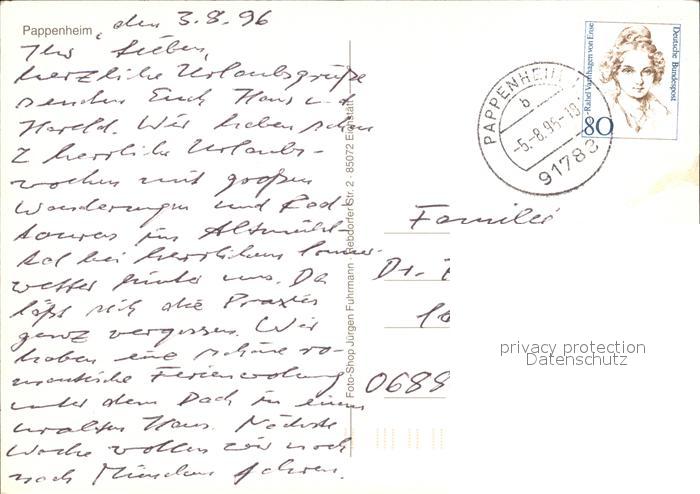 Pappenheim, den 3.8.96
Ihr Lieben,
herzliche Urlaubsgrüße
senden Euch Hans und
Harald. Wir haben schon
2 herrliche Urlaubs-
wochen mit großen
Wanderungen und Rad-
touren im Altmühl-
tal bei herrlichem Sommer-
wetter hinter uns. Da
läßt sich die Praxis
ganz vergessen. Wir
haben eine schöne ro-
mantische Ferienwohnung
unter dem Dach in einem
uralten Haus. Nächste
Woche wollen wir noch
nach München fahren.
Foto-Shop Jürgen Fuhrmann · Rebdorfer Str. 2 · 85072 Eichstätt
PAPPENHEIM
b
-5.-8.96-18
91783
Rahel Varnhagen von Ense
Deutsche Bundespost
80
Familie
Dr.
0688
privacy protection
Datenschutz